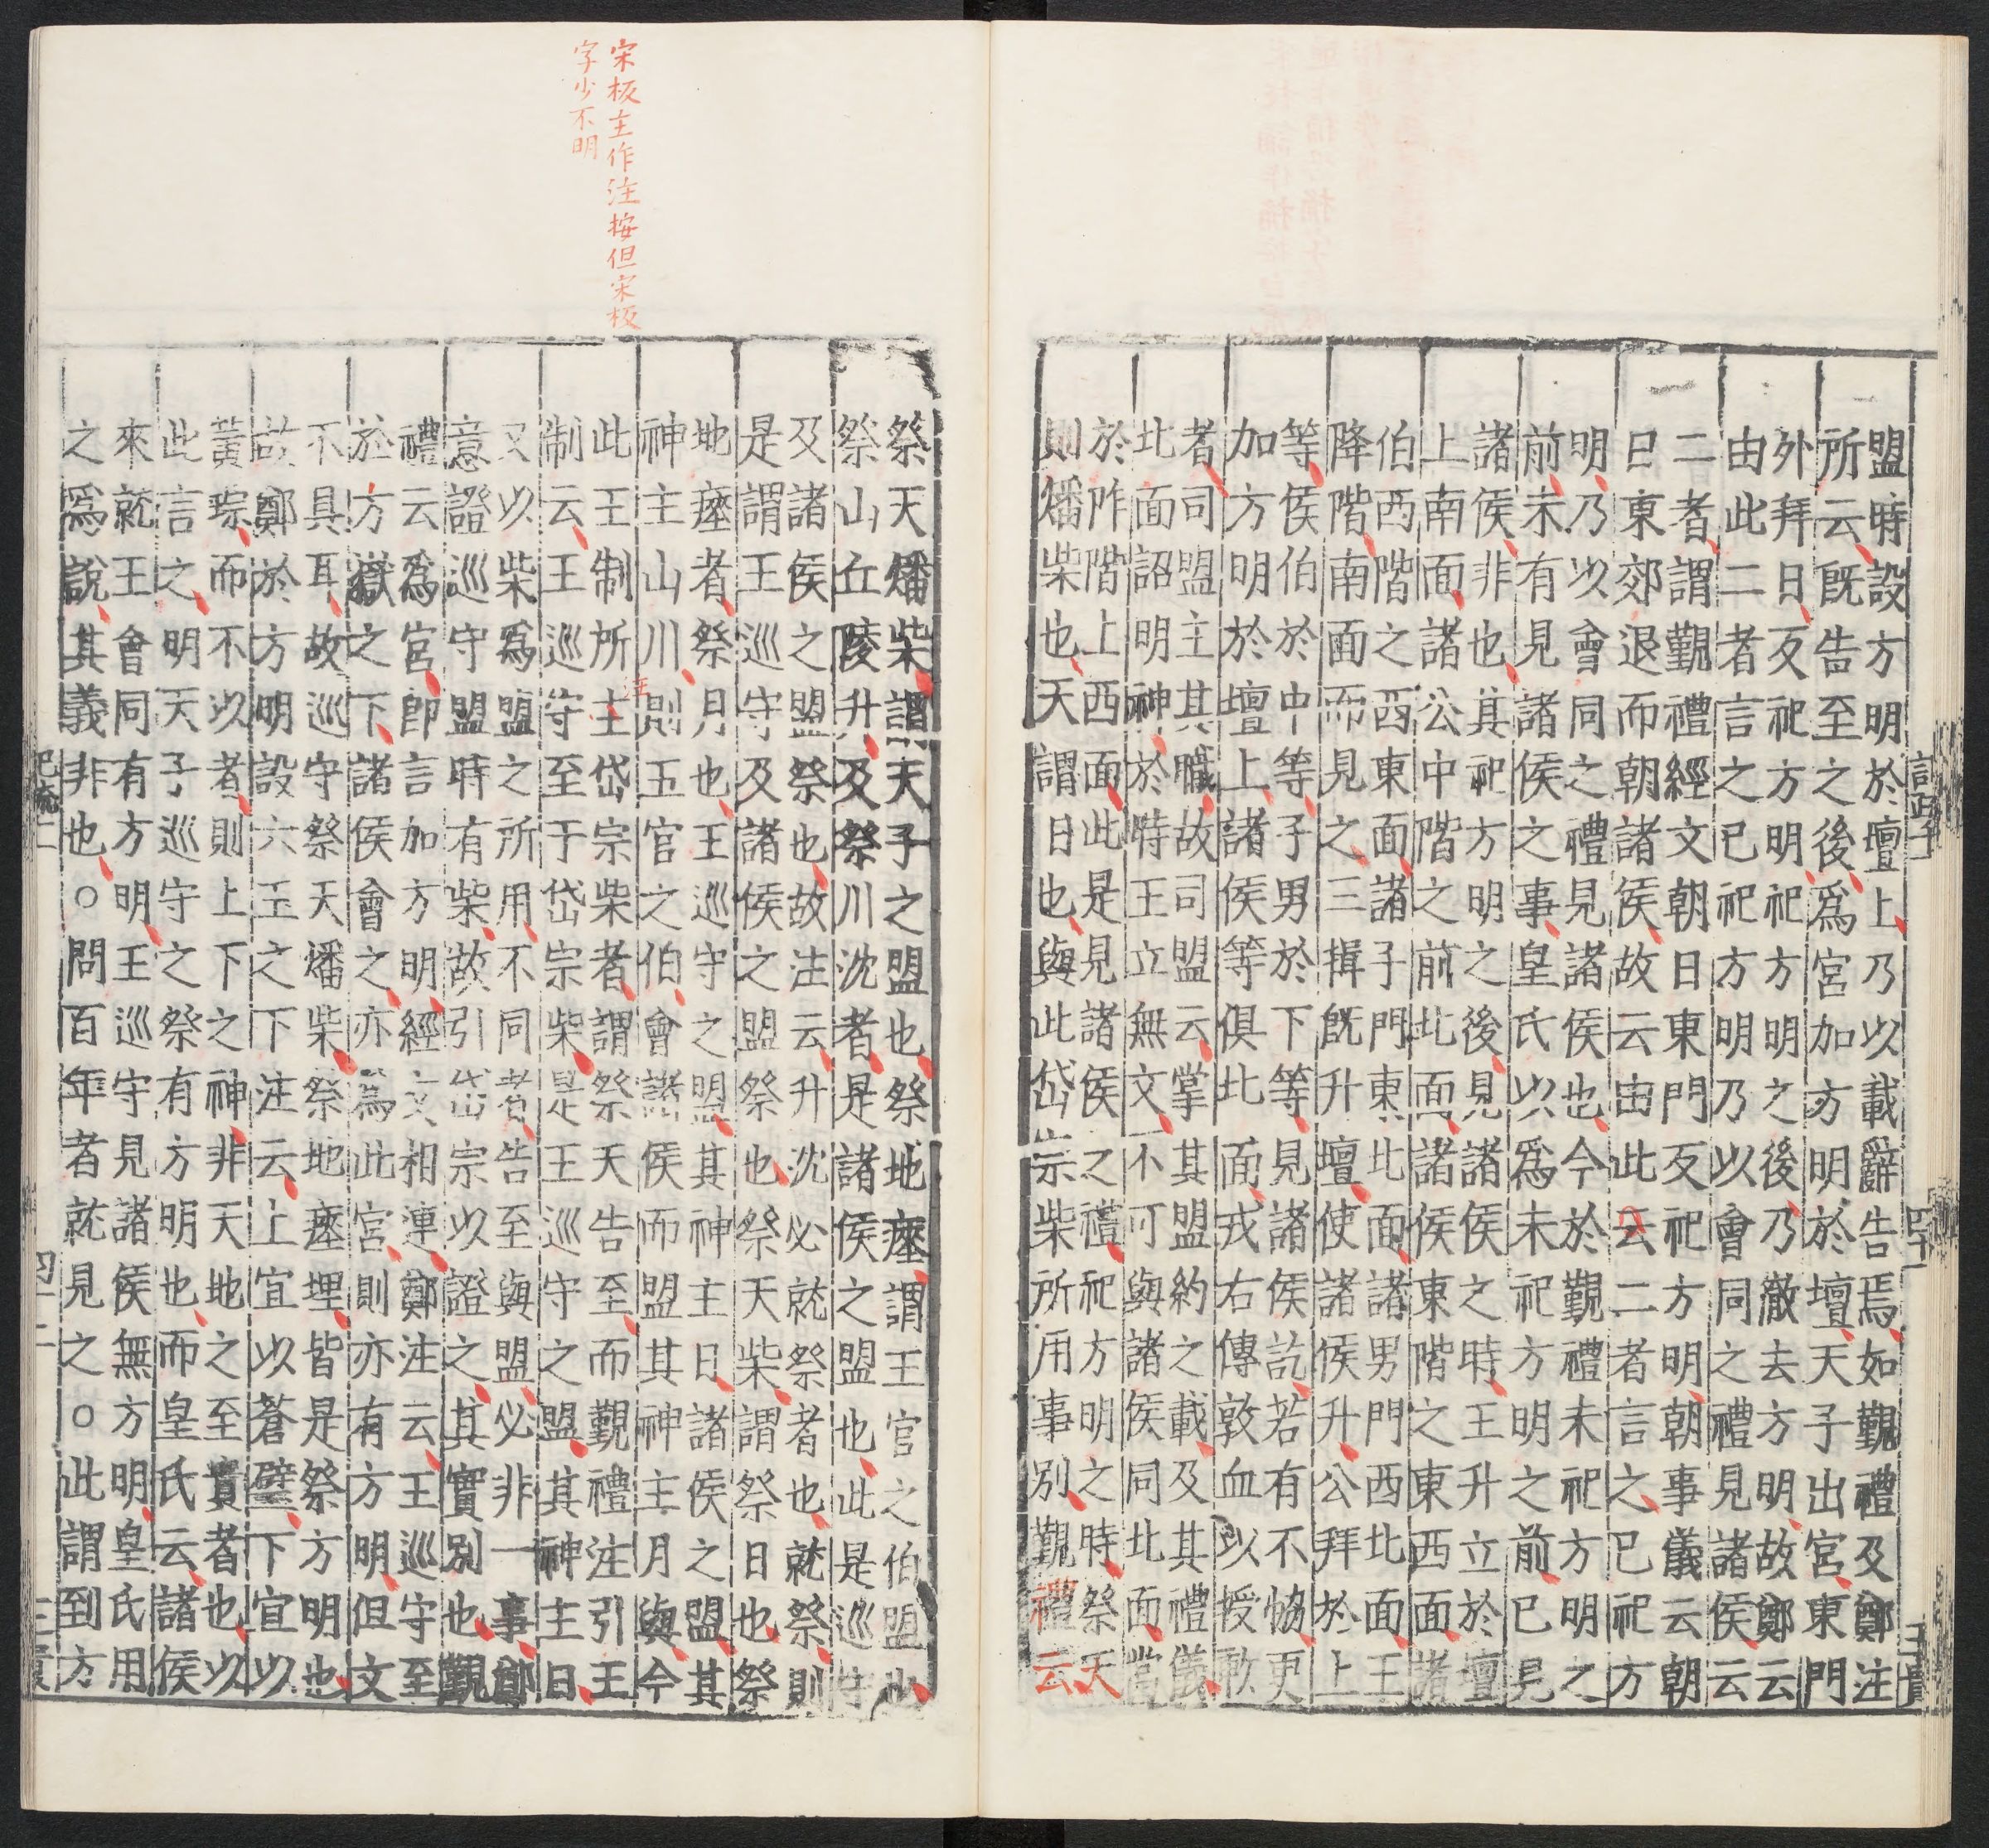 盟時設方明於壇上乃以載辭告焉如覲禮及鄭注
所云既告至之後爲宮加方明於壇天子出宮東門
外拜日反祀方明祀方明之後乃徹去方明故鄭云
由此二者言之已祀方明乃以會同之禮見諸侯云
二者謂覲禮經文朝日東門反祀方明朝事儀云朝
日東郊退而朝諸侯故云由此云二者言之已祀方
明乃以會同之禮見諸侯也今於覲禮未祀方明之
前未有見諸侯之事皇氏以爲未祀方明之前已見
諸侯非也其祀方明之後見諸侯之時王升立於壇
上南面諸公中階之前北面諸侯東階之東西面諸
伯西階之西東面諸子門東北面諸男門西北面王
降階南面而見之三揖既升壇使諸侯升公拜於上
等侯伯於中等子男於下等見諸侯訖若有不恊更
加方明於壇上諸侯等俱北面戎右傳敦血以授歃
者司盟主其職故司盟云掌其盟約之載及其禮儀
北面詔明神於時王立無文不可與諸侯同北面當
於阼階上西面此是見諸侯之禮祀方明之時祭天
則燔柴也天謂日也與此岱宗柴所用事別覲禮云
祭天燔柴謂天子之盟也祭地瘞謂王官之伯盟也
祭山丘陵升及祭川沈者是諸侯之盟也此是巡守
及諸侯之盟祭也故注云升沈必就祭者也就祭則
是謂王巡守及諸侯之盟祭也祭天柴謂祭日也祭
地瘞者祭月也王巡守之盟其神主日諸侯之盟其
神主山川則五官之伯會諸侯而盟其神主月與今
此王制所主岱宗柴者謂祭天告至而覲禮注引王
制云王巡守至于岱宗柴是王巡守之盟其神主日
又以柴爲盟之所用不同者告至與盟必非一事鄭
意證巡守盟時有柴故引岱宗以證之其實別也覲
禮云爲宮即言加方明經文相連鄭注云王巡守至
於方嶽之下諸侯會之亦爲此宮則亦有方明但文
不具耳故巡守祭天燔柴祭地瘞埋皆是祭方明也
故鄭於方明設六玉之下注云上宜以蒼璧下宜以
黃琮而不以者則上下之神非天地之至貴者也以
此言之明天子巡守之祭有方明也而皇氏云諸侯
來就王會同有方明王巡守見諸侯無方明皇氏用
之爲說其義非也○問百年者就見之○此謂到方
宋板主作注按但宋板
字少不明
注